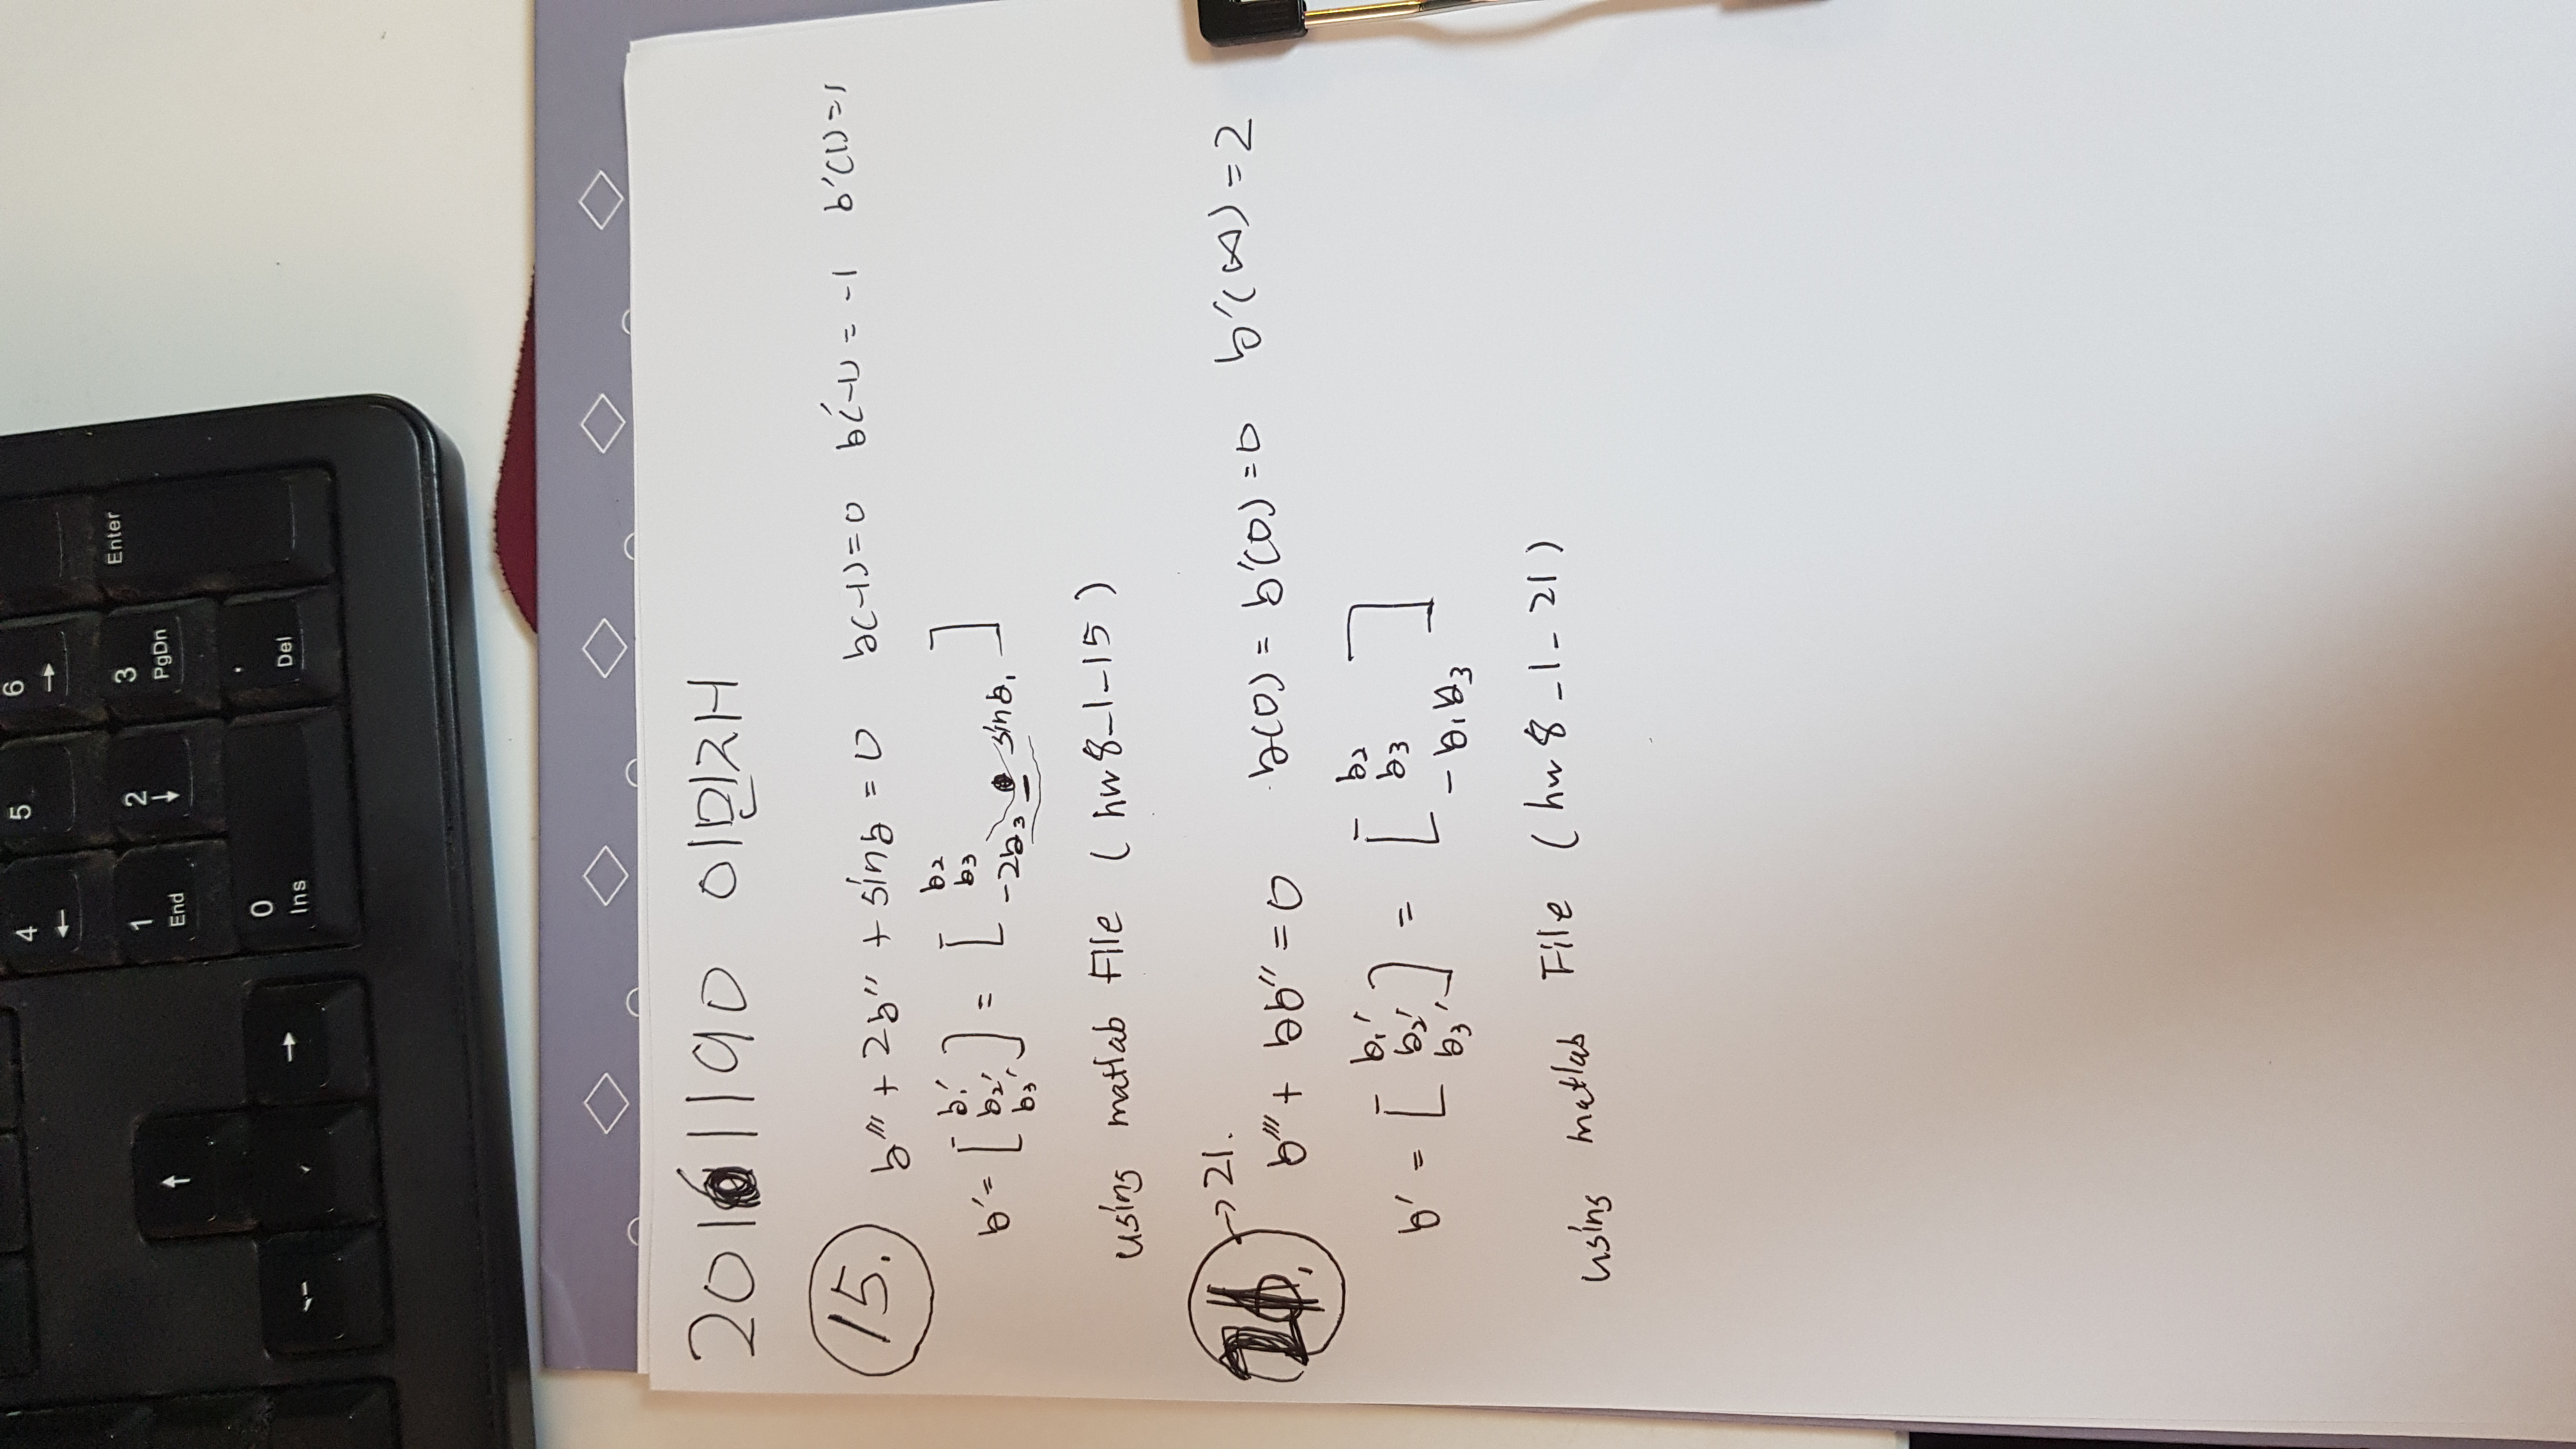 4 5 6
← →
1 2 3 Enter
End ↓ PgDn
↑
0 .
Ins Del
← →
20161190 이민재
15. y''' + 2y'' + sin y = 0 y(-1) = 0 y'(-1) = -1 y'(1) = 1
y' = [ y₁' y₂' y₃' ] = [ y₂ y₃ -2y₃ - sin y₁ ]
using matlab File ( hw8_1_15 )
→ 21.
y''' + yy'' = 0 y(0) = y'(0) = 0 y'(∞) = 2
y' = [ y₁' y₂' y₃' ] = [ y₂ y₃ - y₁y₃ ]
using matlab File ( hw8_1_21 )